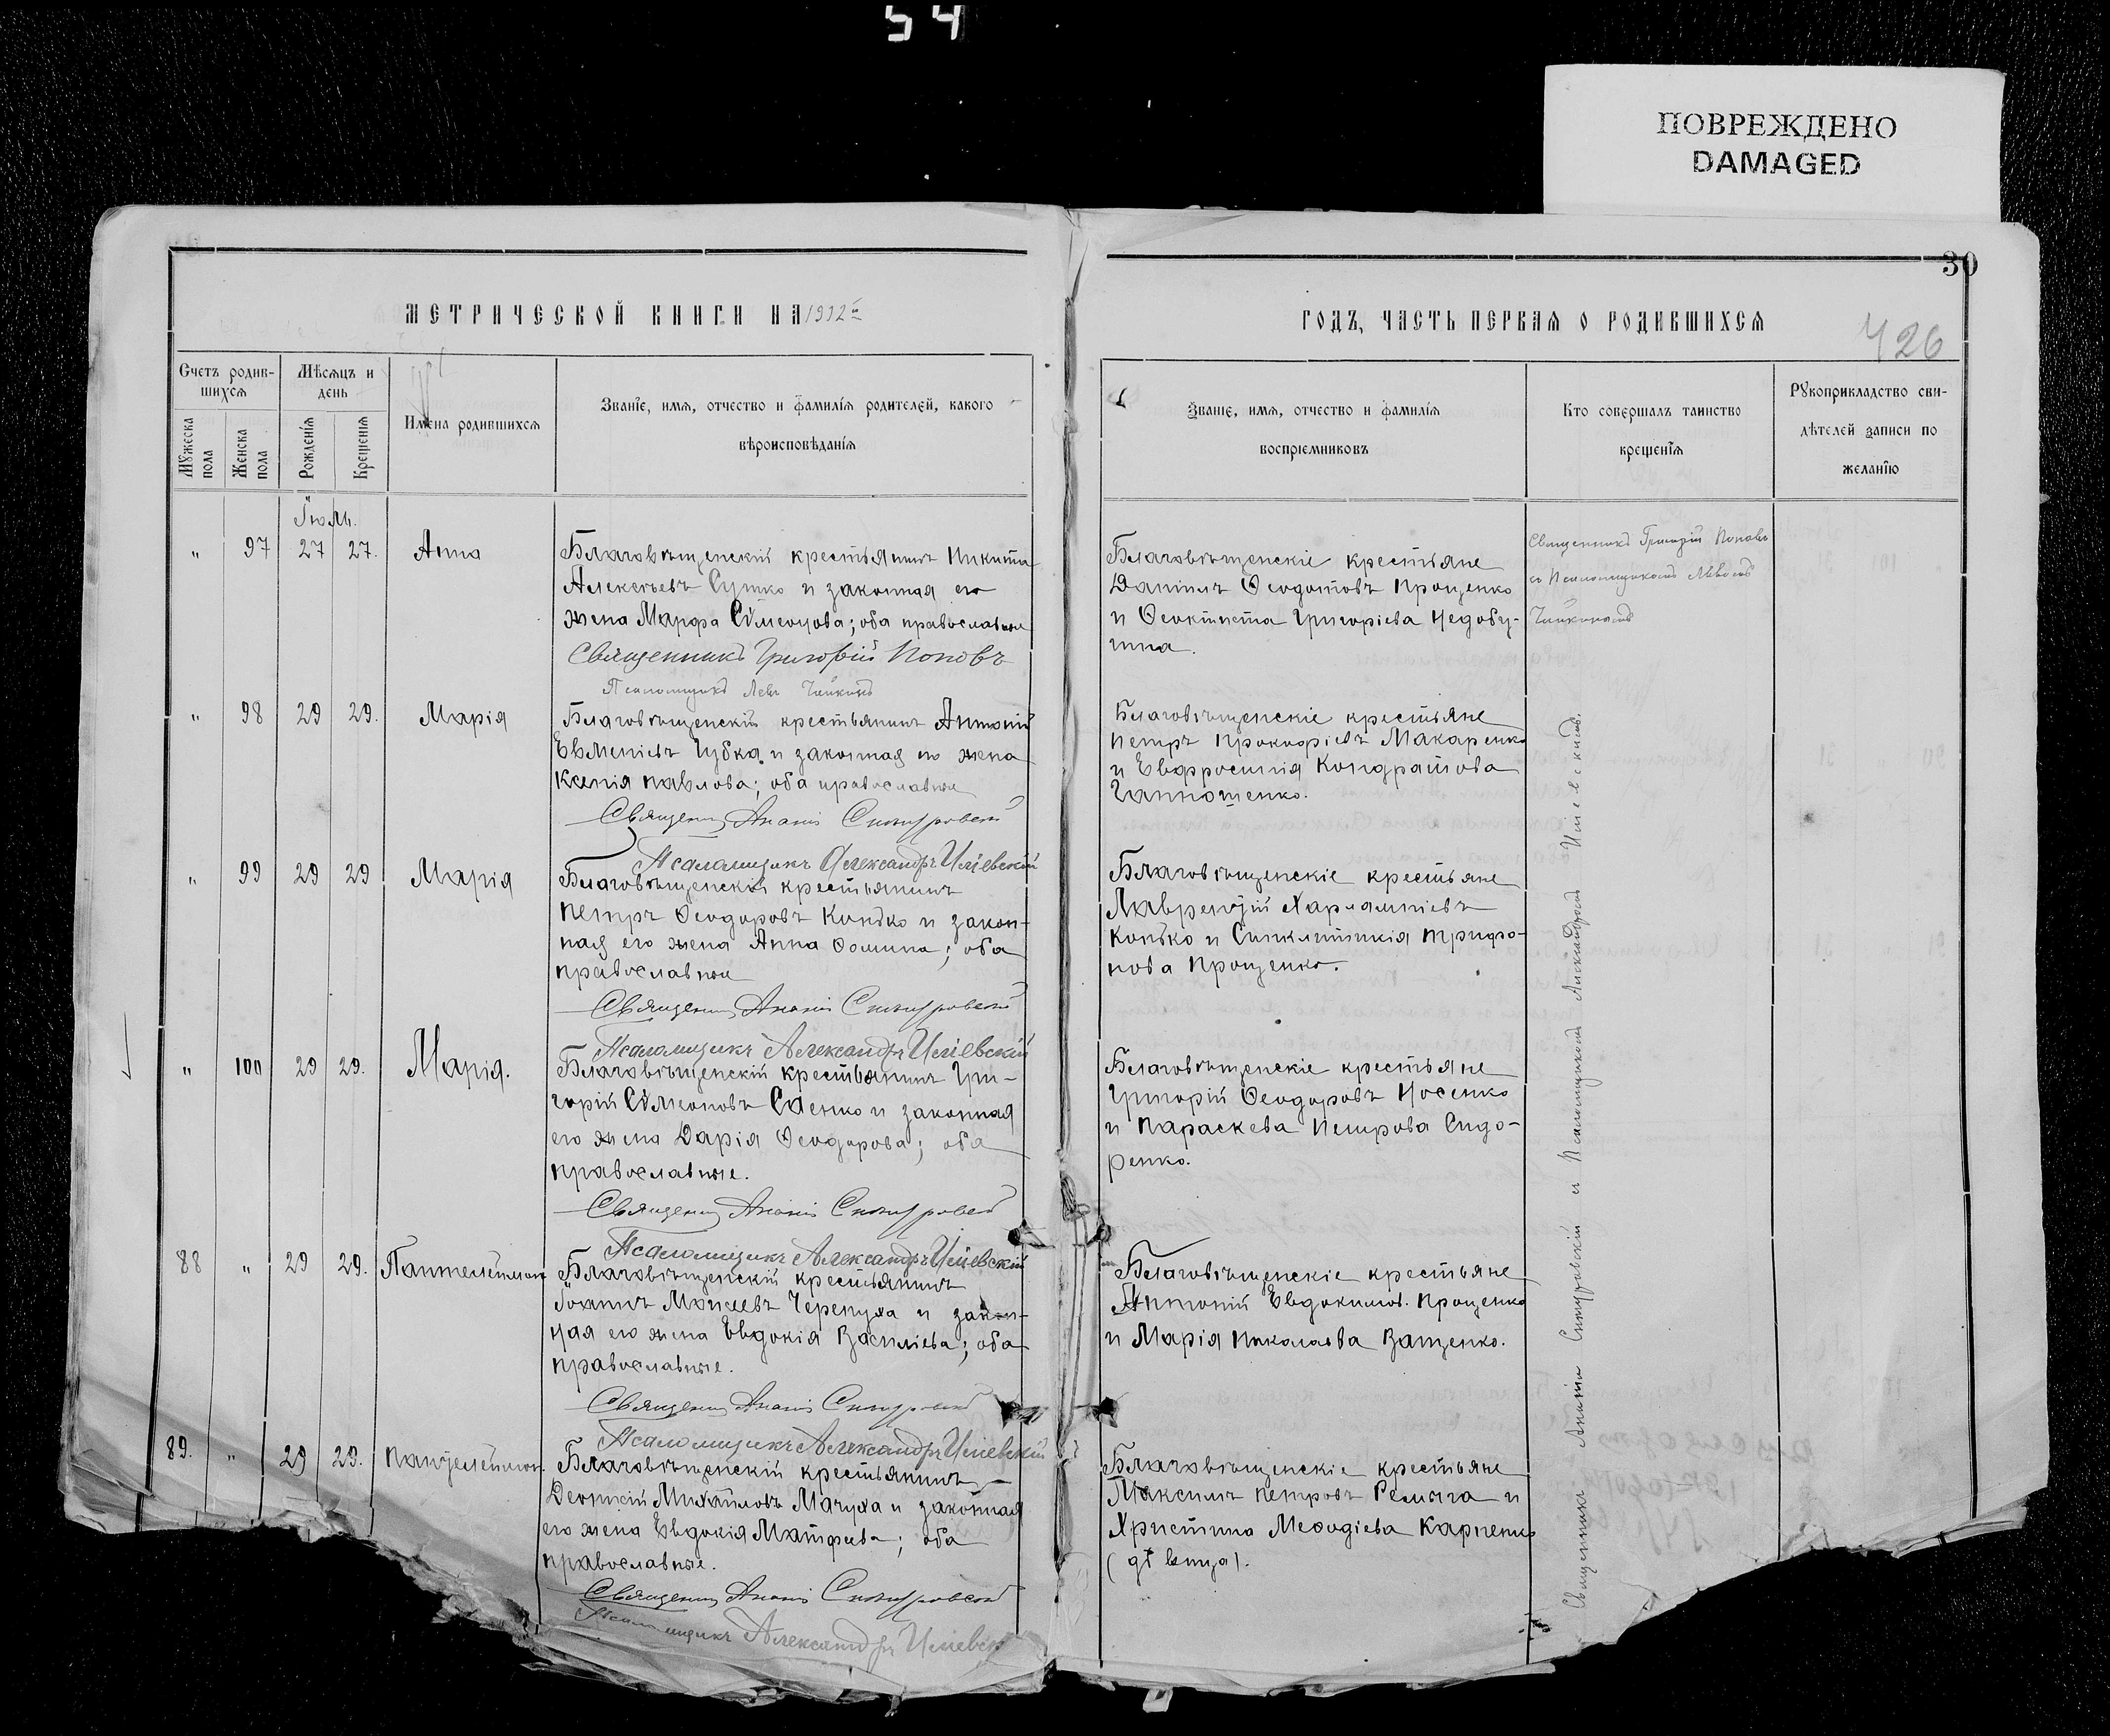 54
ПОВРЕЖДЕНО
DAMAGED
30
МЕТРИЧЕСКОЙ КНИГИ НА 1912 г.
ГОДЪ, ЧАСТЬ ПЕРВАЯ О РОДИВШИХСЯ
426
Счетъ родив-
шихся
Мѣсяцъ и
день
Мужеска
пола
Женска
пола
Рожденія
Крещенія
Имена родившихся
Званіе, имя, отчество и фамилія родителей, какого
вѣроисповѣданія
Званіе, имя, отчество и фамилія
воспріемниковъ
Кто совершалъ таинство
крещенія
Рукоприкладство сви-
дѣтелей записи по
желанію
Іюль.
" 97 27 27. Анна
Благовѣщенскій крестьянинъ Никита
Алексѣевъ Сушко и законная его
жена Марфа Сѵмеонова; оба православные
Священникъ Григорій Поповъ
Псаломщикъ Левъ Чайкинъ
Благовѣщенскіе крестьяне
Даніилъ Ѳеодотовъ Прощенко
и Ѳеоктиста Григоріева Недобу-
гина.
Священникъ Григорій Поповъ
съ Псаломщикомъ Львомъ
" 98 29 29. Марія
Благовѣщенскій крестьянинъ Антоній
Евменіевъ Губка и законная его жена
Ксенія Павлова; оба православные
Священникъ Ананія
Псаломщикъ Александръ Иліевскій
Благовѣщенскіе крестьяне
Петръ Прокофіевъ Макаренко
и Евфросинія Кондратова
" 99 29 29 Марія
Благовѣщенскій крестьянинъ
Петръ Ѳеодоровъ Конько и закон-
ная его жена Анна Ѳомина; оба
православные
Священникъ Ананія
Псаломщикъ Александръ Иліевскій
Благовѣщенскіе крестьяне
Лаврентій Харлампіевъ
Конько и Синклитикія Трифо-
нова Прощенко.
" 100 29 29. Марія.
Благовѣщенскій крестьянинъ Гри-
горій Сѵмеоновъ Саенко и законная
его жена Дарія Ѳеодорова; оба
православные.
Священникъ Ананія
Псаломщикъ Александръ Иліевскій
Благовѣщенскіе крестьяне
Григорій Ѳеодоровъ Носенко
и Параскева Петрова Сидо-
ренко.
88 " 29 29. Пантелеимон
Благовѣщенскій крестьянинъ
Іоаннъ Моисеевъ Черепуха и закон-
ная его жена Евдокія Василіева; оба
православные.
Священникъ Ананія
Псаломщикъ Александръ Иліевскій
Благовѣщенскіе крестьяне
Антоній Евдокимов. Прощенко
и Марія Николаева Ващенко.
89. " 29 29. Пантелеимон.
Благовѣщенскій крестьянинъ
Михаиловъ Мачуха и законная
его жена Евдокія Матфеева; оба
православные.
Священникъ Ананія
Псаломщикъ Александръ Иліевскій
Благовѣщенскіе крестьяне
Максимъ Петровъ Ремыга и
Христина Меѳодіева Карпенко
(дѣвица).
Священникъ Ананія и Псаломщикомъ Александромъ Иліевскимъ.